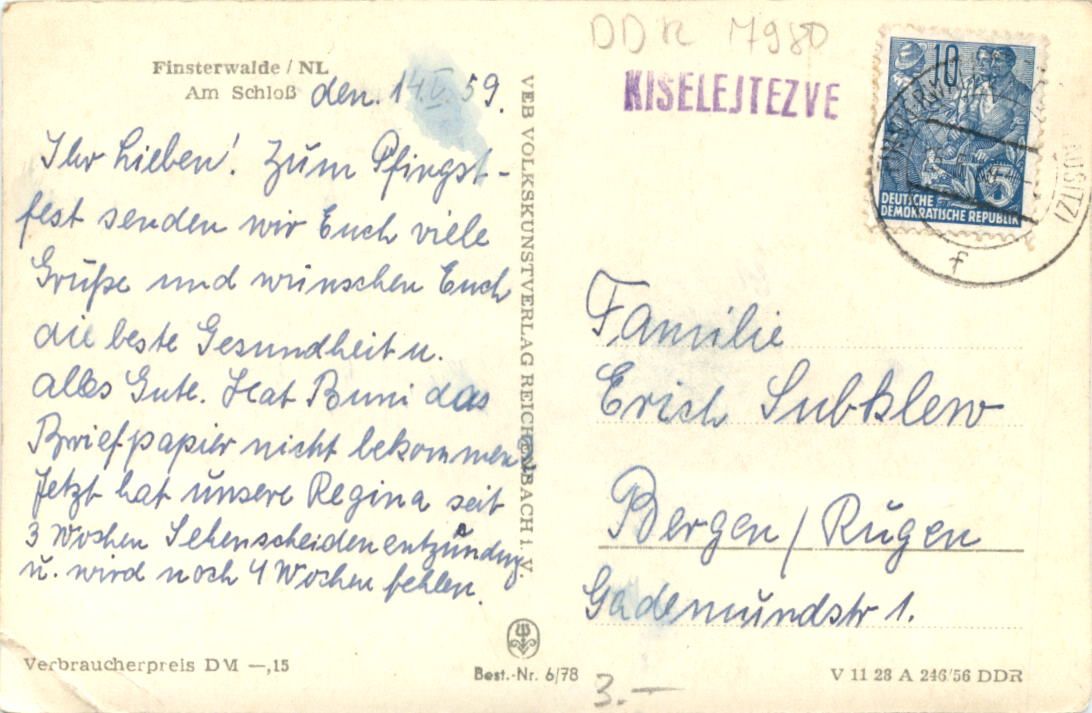 Finsterwalde / NL
Am Schloß
den 14.V.59.
Ihr Lieben! Zum Pfingst-
fest senden wir Euch viele
Grüße und wünschen Euch
die beste Gesundheit u.
alles Gute. Hat Buni das
Briefpapier nicht bekommen
Jetzt hat unsere Regina seit
3 Wochen Sehenscheidenentzündung
u. wird noch 4 Wochen fehlen.
Verbraucherpreis DM —,15
VEB VOLKSKUNSTVERLAG REICHENBACH i. V.
Best.-Nr. 6/78
3.—
DDR 17980
KISELEJTEZVE
10
DEUTSCHE
DEMOKRATISCHE REPUBLIK
Familie
Erich Subklew
Bergen / Rügen
Gademundstr 1.
V 11 28 A 246/56 DDR